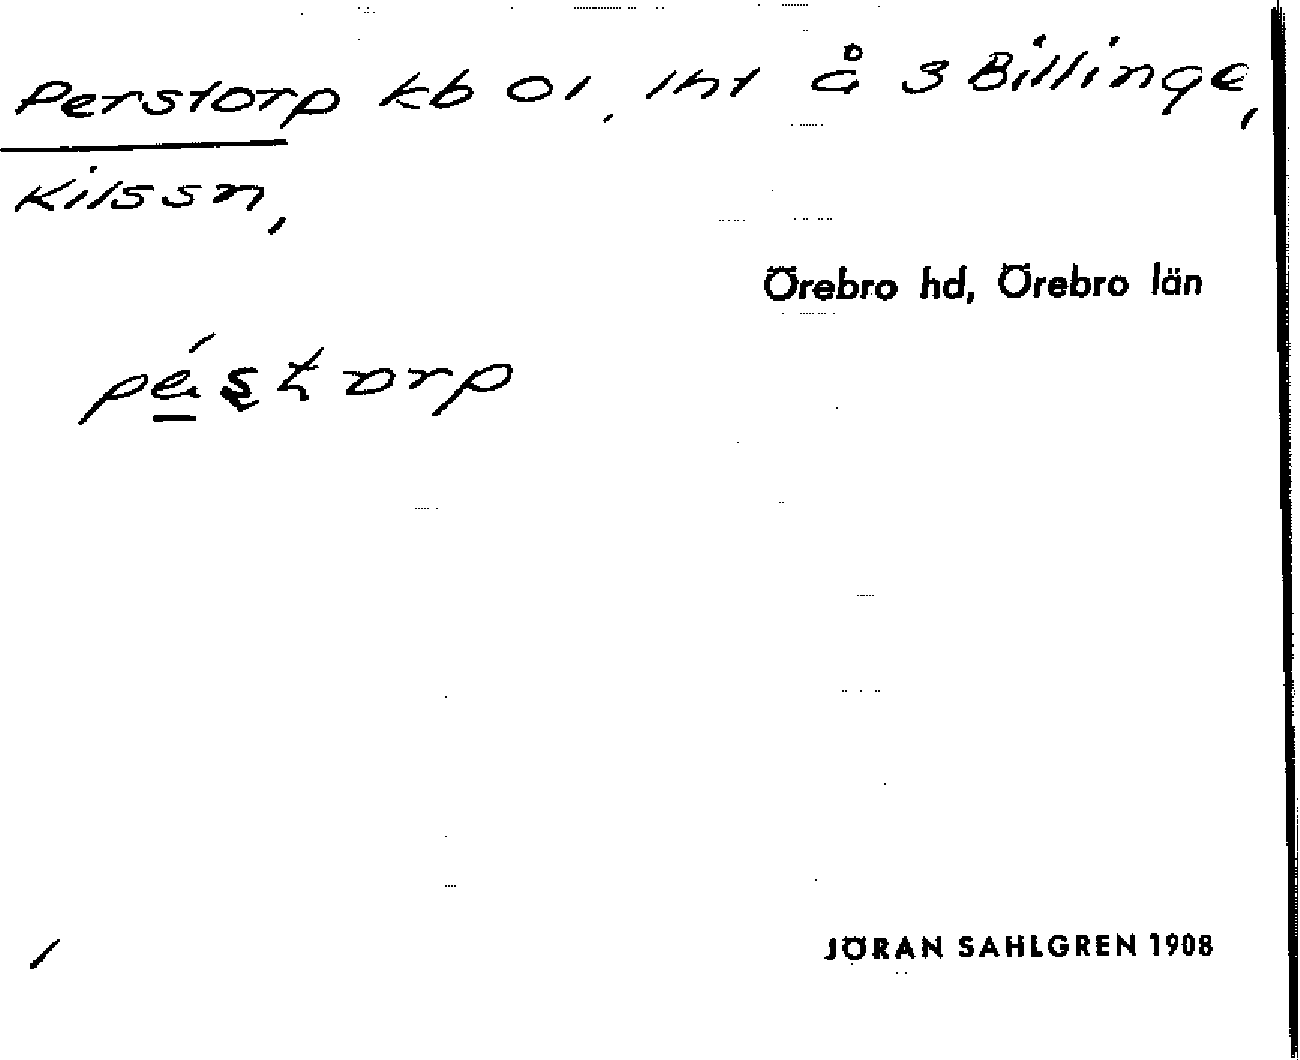 Perstorp kb Ol, lht å 3 Billinge,
Kilssn,
Örebro hd, Örebro län
péstorp
JÖRAN SAHLGREN 1908